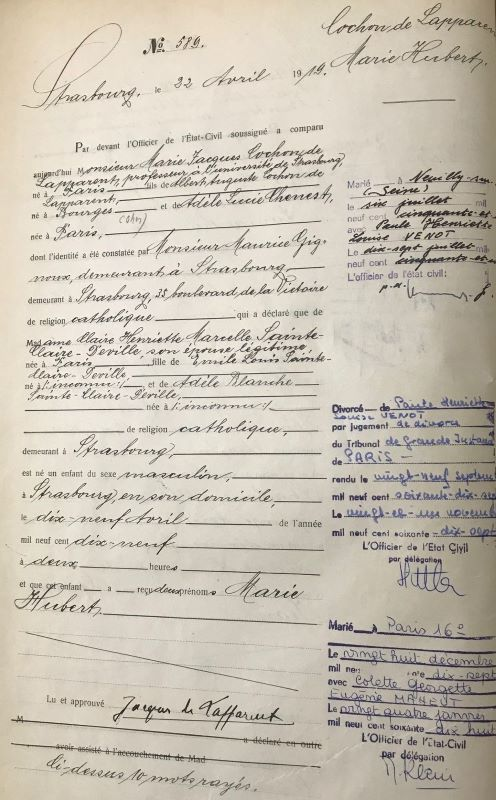 No. 589.
Cochon de Lapparent
Marie Hubert.
Strasbourg, le 22 Avril 1919.
Par devant l'Officier de l'État-Civil soussigné a comparu
aujourd'hui Monsieur Marie Jacques Cochon de
Lapparent, professeur à l'université de Strasbourg
né à Paris fils de Albert Auguste Cochon de
Lapparent,
né à Bourges et de Adèle Lucie Chenest,
née à Paris,
dont l'identité a été constatée par Monsieur Maurice Gig-
noux, demeurant à Strasbourg
demeurant à Strasbourg, 35, boulevard de la Victoire
de religion catholique qui a déclaré que de
Madame Claire Henriette Marcelle Sainte-
Claire-Déville, son épouse légitime,
née à Paris fille de Emile Louis Sainte-
Claire-Déville,
né à l'inconnu :/ et de Adèle Blanche
Sainte-Claire-Déville,
née à l'inconnu :/
de religion catholique,
demeurant à Strasbourg,
est né un enfant du sexe masculin,
à Strasbourg, en son domicile,
le dix-neuf Avril de l'année
mil neuf cent dix-neuf
à deux heures
et que cet enfant a reçu deux prénoms Marie
Hubert.
Lu et approuvé
Jacques de Lapparent
M a déclaré en outre
avoir assisté à l'accouchement de Mad
Ci-dessus 10 mots rayés.
Marié à Neuilly-sur-
(Seine)
le six juillet mil
neuf cent cinquante-et-
avec Paule Henriette
Louise VENOT
Le dix-sept juillet mil
neuf cent cinquante-et-
L'officier de l'état civil:
Divorcé de Paule Henriette
Louise VENOT
par jugement de divorce
du Tribunal de Grande Instance
de PARIS
rendu le vingt-neuf septembre
mil neuf cent soixante-dix-sept
Le vingt-et-un novembre
mil neuf cent soixante dix-sept
L'Officier de l'Etat Civil
par délégation
Marié à Paris 16e
Le vingt huit décembre
mil neuf dix-sept
avec Colette Georgette
Eugénie
Le vingt quatre janvier
mil neuf cent soixante dix huit
L'Officier de l'Etat-Civil
par délégation